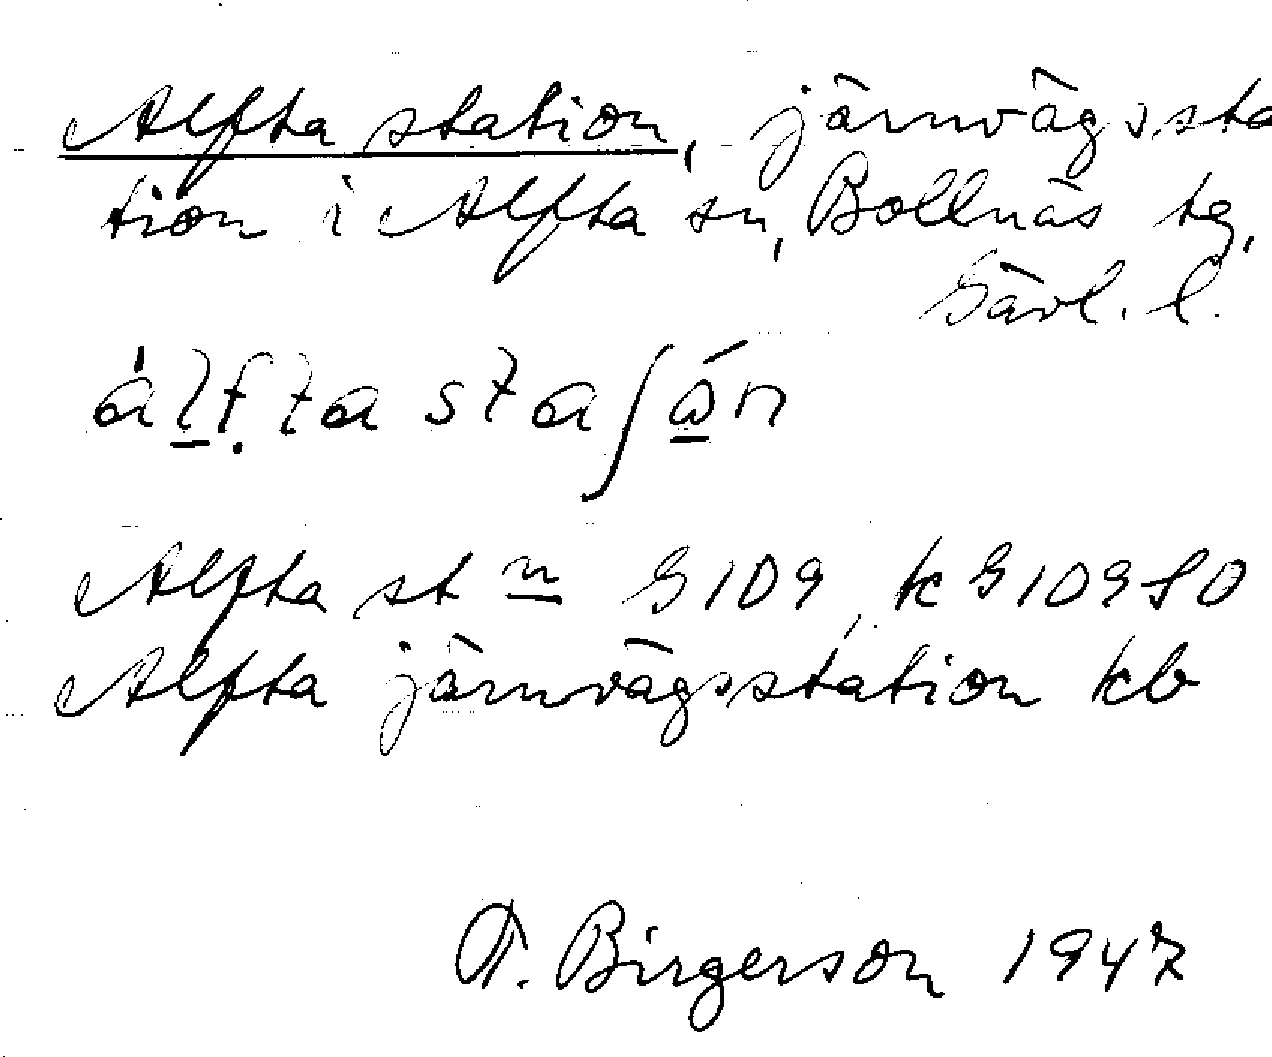 Alfta station, järnvägssta
tion i Alfta sn, Bollnäs tg,
Gävl. l.
álfta staʃån
Alfta st n G109, k G109SO
Alfta järnvägsstation kb
T. Birgerson 1947